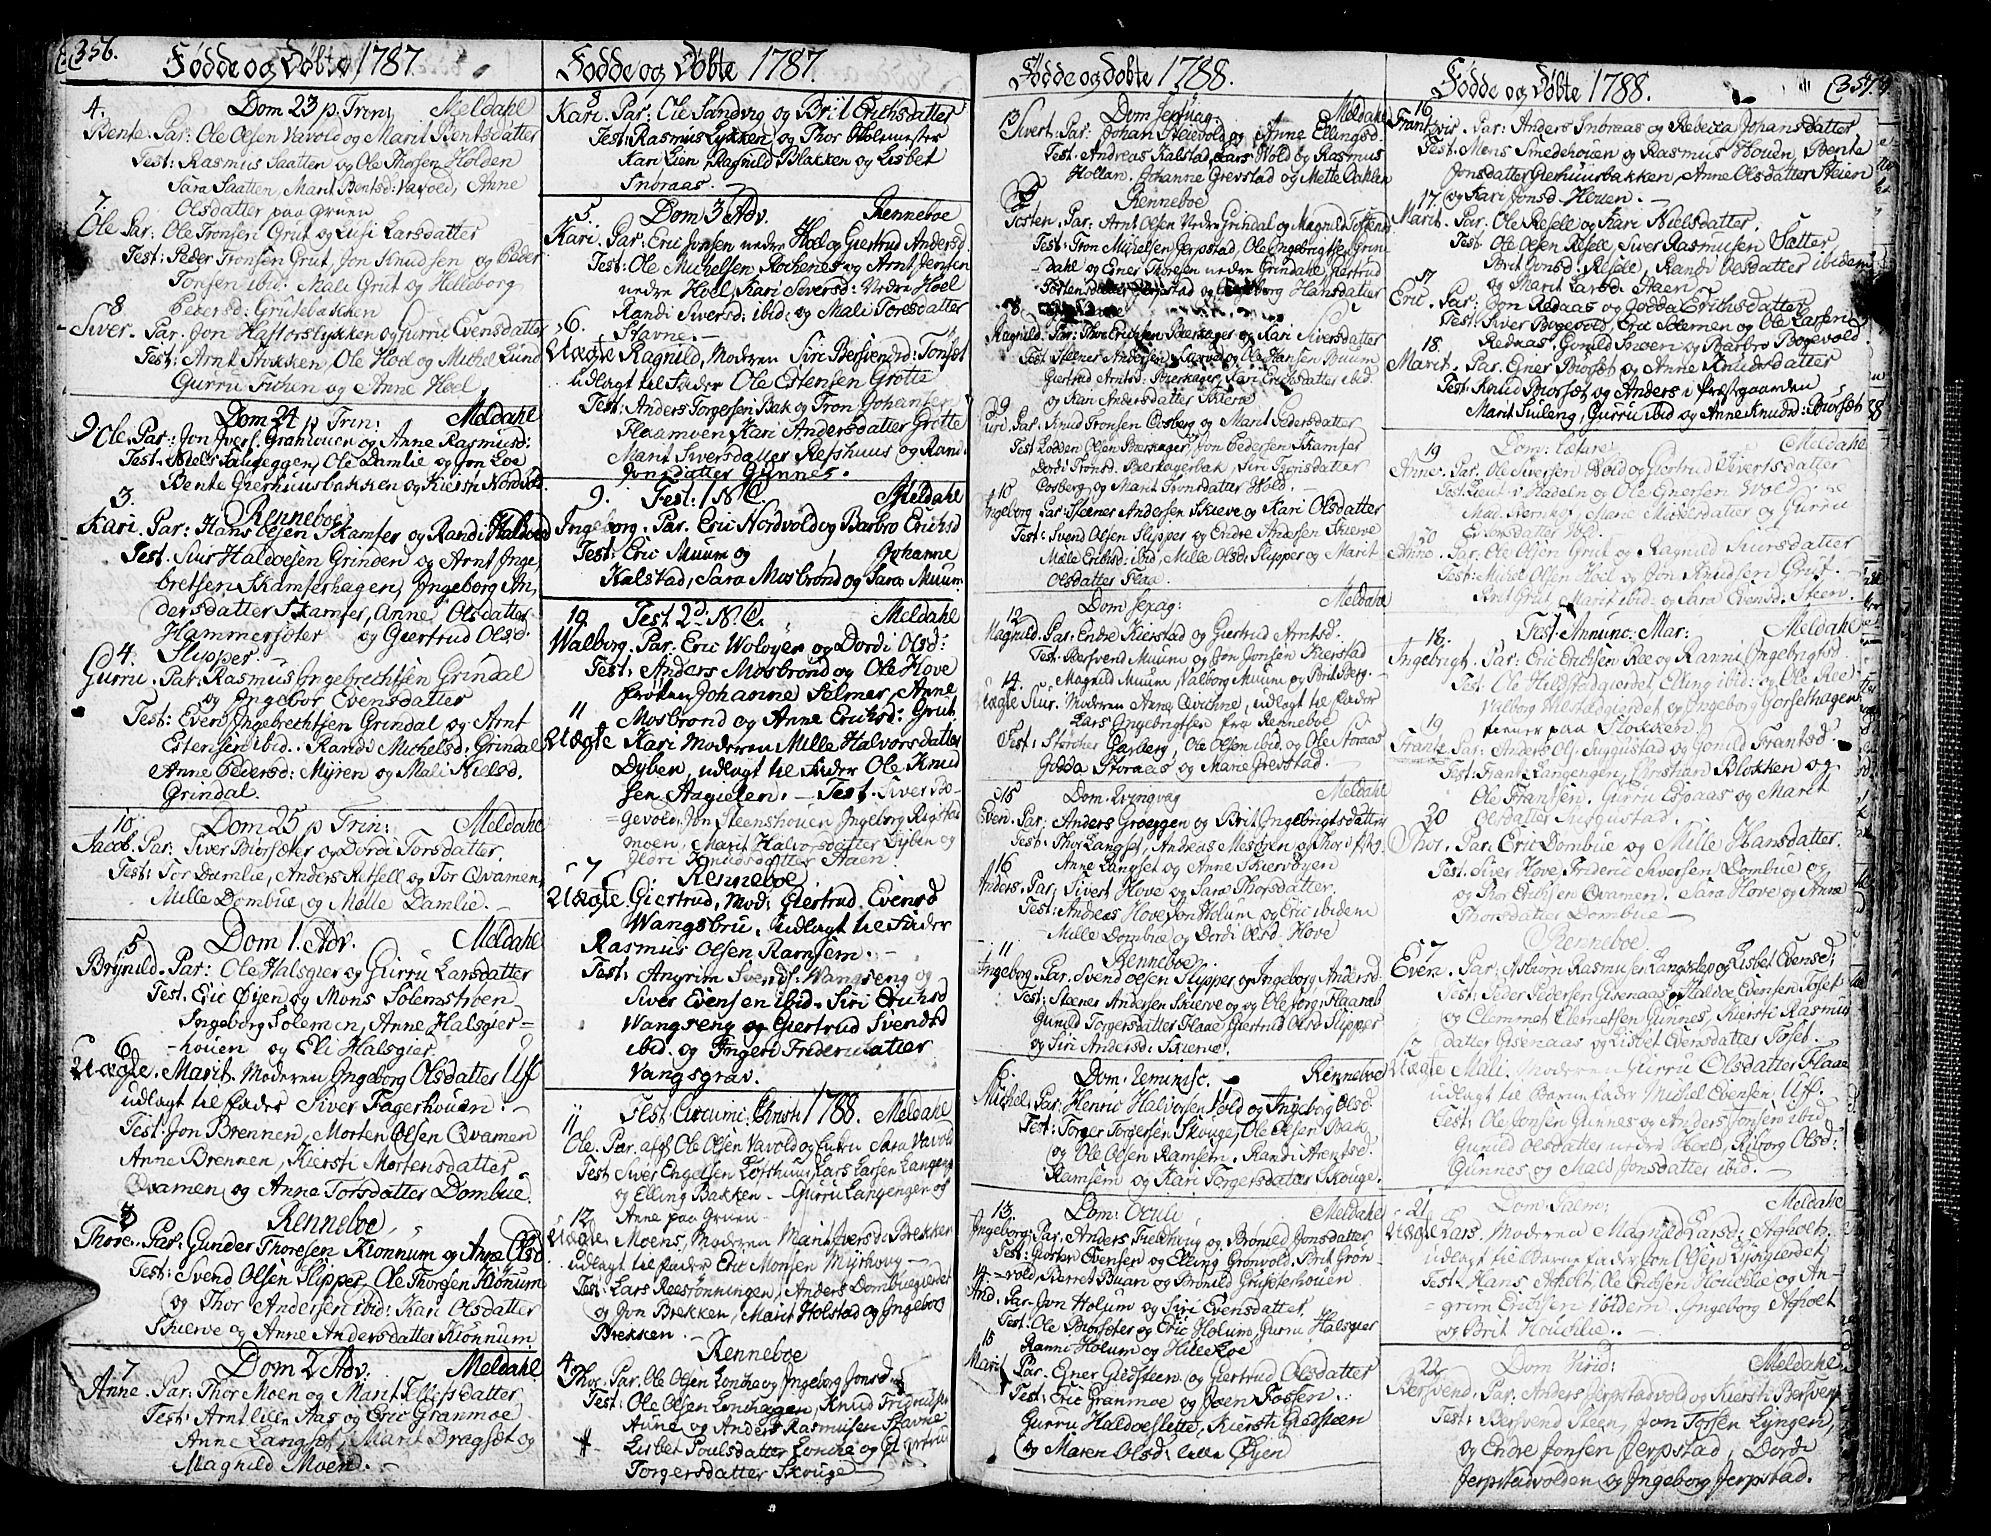 356.
Fødde og Døbte 1787.
4. Dom 23 p. Trin: Meldahl
Bente. Par: Ole Olsen Vavold og Marit Bentsdatter
Test: Rasmus Saatten og Ole Thorsen Holden
Sara Saatten, Marit Bentsd: Vavold, Anne
Olsdatter paa Gruen
7.
Ole Par: Ole Tronsen Grut og Lusi Larsdatter
Test: Peder Tronsen Grut, Jon Knudsen og Peder
Tonsen ibid: Mali Grut og Helleborg
8 Pedersd: Grutebakken
Siver. Par: Jon Haftorslykken og Gurru Evensdatter
Test: Arnt Stukken, Ole Hoel og Michel Lund
Gurru og Anne Hoel
Dom 24 p Trin: Meldahl
9 Ole. Par: Jon Ivers. Granhouen og Anne Rasmusd:
Test: Niels Saugeggen, Ole Damlie og Jon Loe
Bente Gierhuusbakken og Kiersti Nordvold
3. Renneboe
Kari. Par: Hans Olsen Skamfer og Randi Haldoesd
Test: Siur Haldoesen Grinden og Arnt Inge-
bretsen Skamferhagen, Ingeborg An-
dersdatter Skamfer, Anne Olsdatter
Hammersøter og Giertrud Olsd.
4. Slipper.
Gurru. Par: Rasmus Ingebrechtsen Grindal
og Ingebor Evensdatter
Test: Even Ingebrechtsen Grindal og Arnt
Estensen ibid. Randi Michelsd: Grindal
Anne Pedersd: Myren og Mali Nielsd.
Grindal.
10 Dom 25 p Trin: Meldahl
Jacob. Par: Siver Biorseter og Dordi Torsdatter.
Test: Tor Damlie, Anders Refsell og Tor Qvamen
Mille Dombue og Mølle Damlie.
5 Dom 1. Adv. Meldahl
Brynild. Par: Ole Halsgier og Gurru Larsdatter
Test: Eric Øyen og Mons Solemstroen
Ingeborg Solemen, Anne Halsgier-
6. houen og Eli Halsgier
Uægte. Marit. Moderen Ingeborg Olsdatter Uf
udlagt til fader Siver Fagerhouen.
Test: Jon Brennen, Morten Olsen Qvamen
Anne Brennen, Kiersti Mortensdatter
Qvamen og Anne Torsdatter Dombue.
Renneboe
Thore. Par: Gunder Thoresen Kionnum og Anne Olsd
Test: Svend Olsen Slipper, Ole Thoresen Kionum
og Thor Andersen ibid: Kari Olsdatter
Skierve og Anne Andersdatter Kionnum
7 Dom 2 Adv. Meldahl
Anne. Par: Thor Moen og Marit Ellifsdatter
Test: Arnt lille Aas og Eric Granmoe
Anne Langset, Marit Dragset og
Magnild Moen.
Fødde og Døbte 1787
8
Kari. Par: Ole Sandvig og Brit Erichsdatter
Test: Rasmus Lykken og Thor Holmester
Kari Lien, Ragnild Blakken og Lisbet
Snoraas.
5. Dom 3 Adv. Renneboe
Kari. Par: Eric Jonsen nedre Hoel og Giertrud Andersd.
Test: Ole Michelsen Rochenes og Arnt Jensen
nedre Hoel, Kari Siversd: Nedre Hoel
Randi Siversd: ibid: og Mali Toresdatter
6. Stavne.
Uægte Ragnild, Moderen Siri Bersvensd: Tonset
udlagt til Fader Ole Estensen Grotte
Test: Anders Torgersen Bak og Tron Johansen
Haamoen Kari Andersdatter Grotte
Marit Siversdatter Refshuus og Randi
Jonsdatter Gunnes
9. Fest: 1 N.C. Meldahl
Ingeborg. Par: Eric Nordvold og Barbro Erichsd
Test: Eric Muum og Johanne
Kalstad, Sara Mosbrond og Sara Muum.
10. Fest 2d: N.C. Meldahl
Walborg. Par: Eric Woløyer og Dordi Olsd:
Test: Anders Mosbrond og Ole Hove
Johanne Selmer, Anne
11 Mosbrond og Anne Erichsd: Grut
Uægte Kari Moderen Mille Halvorsdatter
Dyben, udlagt til Fader Ole Knud
sen Aagielen. Test: Siver Bo-
gevold, Jon Steenshouen Ingeborg Rugstad
moen, Marit Halvorsdatter Dyben og
Ildri Knudsdatter Aaen.
7 Renneboe
Uægte Giertrud, Mod: Giertrud Evensd
Wangsbru, udlagt til Fader
Rasmus Olsen Ramsem.
Test: Angrim Svends: Wangseng og
Siver Evensen ibid. Siri Erichsd
Wangseng og Giertrud Svendsd
ibid. og Ingeri Friderichsdatter
Vangsgrav.
11 Fest Circumc. Christi 1788. Meldahl
Ole. Par. afg: Ole Olsen Vavold og Enken Sara Vavold
Test: Siver Engelsen Lorthuus, Lars Larsen Langeng
og Elling Bakken. Gurru Langengen og
12. Anne paa Gruen.
Uægte Moens, Moderen Marit Iversd: Brekken
udlagt til fader Eric Monsen Myrhoug
Test: Lars Reesrønningen, Anders Dombuegierdet
og Jon Brekken, Marit Holstad og Ingebor
Brekken.
Renneboe
4.
Thor. Par: Ole Olsen Lonche og Ingeborg Jonsd
Test: Ole Olsen Lonchagen, Knud Fridrichsen
Aune og Anders Rasmusen Stavne
Lisbet Poulsdatter Lonche og Gurru
Torgersdatter Skouge
Fødde og Døbte 1788.
13 Dom Septuag: Meldahl
Sivert. Par: Johan Steievold og Anne Ellingsd:
Test: Andreas Kalstad, Lars Wold og Rasmus
Hollan. Johanne Grevstad og Mette Bakken
Renneboe
Tosten. Par: Arnt Olsen Nedre Grindal og Magnild Tostensd
Test: Tron Michelsen Jerpstad, Ole Ingebrigtsen Grin-
dahl og Ener Thoresen nedre Grindahl, Giertrud
Jerpstad og Ingeborg Hansdatter
8.
Ragnild. Par: Thor Erichsen Berkager og Kari Siversdatter
Test: Steener Andersen og Ole Hansen Buum
Giertrud Arntsd: Berkager, Kari Erichsdatter ibid.
og Kari Andersdatter Skierve
9
Guri. Par: Knud Tronsen Cosberg og Marit Pedersdatter
Test: Lodden Olsen Berkager, Jon Pedersen Skamfer
Dordi Tronsd: Berkagerbak, Siri Tronsdatter
Cosberg og Marit Tronsdatter Wold.
10
Ingeborg Par: Steener Andersen Skierve og Kari Olsdatter
Test: Svend Olsen Slipper og Endre Andersen Skierve
Mille Erichsd: ibid: Mille Olsd: Slipper og Marit
Olsdatter Flaa.
12. Dom Sexag: Meldahl
Magnild. Par: Endre Kierstad og Giertrud Arntsd.
Test: Bersvend Muum og Jon Jonsen Kierstad
14. Magnild Muum, Valborg Muum og Brit Berg.
Uægte Siur. Moderen Anne Qvichne, udlagt til fader
Lars Ingebrigtsen fra Renneboe
Test: Størcher Gasberg, Ole Olsen ibid. og Ole Storaas
Jødda Storaas og Marie Grevstad.
15 Dom. Qvinqvag Meldahl
Even. Par: Anders Groeggen og Brit Ingebrigtsdatter
Test: Thor Langset, Andreas Mesøyen og Thor ibid.
16 Anne Langset og Anne Skiersbyen
Anders. Par: Sivert Hove og Sara Thorsdatter.
Test: Andreas Hove, Jon Holum og Eric ibidem
Mille Dombue og Dordi Olsd: Hove
11 Renneboe
Ingeborg. Par: Svend Olsen Slipper og Ingeborg Andersd:
Test: Steener Andersen Skierve og Ole Jorg: Flaaneb
Gunild Torgersdatter Flaae, Giertrud Olsd Slipper
og Siri Andersd: Skierve.
6. Dom: Reminisc. Renneboe
Michel. Par: Henric Halvorsen Vold og Ingeborg Olsd
Test: Torger Torgersen Skouge, Ole Olsen Bak
og Ole Olsen Ramsem. Randi Arentsd.
Ramsem og Kari Torgersdatter Skouge.
13. Dom: Oculi Meldahl
Ingeborg. Par: Anders Fieldhoug og Bronild Jonsdatter
Test: Gorten Evensen og Elling Gronvold, Brit Gron-
14. vold, Berret Buan og Bronild Grutsterhouen
And. Par. Jon Holum og Siri Evensdatter.
Test: Ole Biorseter og Eric Holum, Gurru Halsgier
15 Ranni Holum og Hille Loe
Marit Par. Ener Giedsteen og Giertrud Olsdatter
Test: Eric Granmoe og Joen Fossen.
Gurru Haldoeslette, Kiersti Giedsteen
og Maren Olsd: lille Øyen
Fødde og Døbte 1788.
357.
16
Frantz. Par: Anders Snoraas og Rebecca Johansdatter
Test: Mons Smedehouen og Rasmus Houen, Bente
Jonsdatter Gierhuusbakken, Anne Olsdatter Steien
17 og Kari Jonsd. Houen.
Marit. Par: Ole Reselle og Kari Nielsdatter.
Test: Ole Olsen Reselle, Siver Rasmusen Sætter,
Brit Jonsd: Reselle, Randi Olsdatter ibidem
17 og Marit Larsd: Aaen.
Eric. Par: Jon Redaas og Jødda Erichsdatter
Test: Siver Bogevold, Eric Solemen og Ole Larsen
Redaas, Gunild Moen og Barbro Bogevold.
18.
Marit. Par: Ener Biorset og Anne Knudsdatter
Test: Knud Biorset og Anders i Prestgaarden
Marit Siuleng, Gurru ibid og Anne Knudsd: Biorset
19 Dom: Lætare. Meldahl
Anne. Par: Ole Siversen Wold og Giertrud Siversdatter
Test: Lieut: v Stadeln og Ole Enersen Wold.
Mad. Mane Michelsdatter og Gurru
20 Ericsdatter Wold.
Anne. Par. Ole Olsen Grut og Ragnild Siursdatter
Test: Michel Olsen Hoel og Jon Knudsen Grut.
Brit Grut, Marit ibid: og Sara Evensd: Steen.
18. Fest Annunc: Mar: Meldahl
Ingebrigt. Par: Eric Erichsen Ree og Ranni Ingebrigtsd
Test: Ole Hilstadgierdet, Elling ibid: og Ole Ree
Valborg Hilstadgierdet og Ingeborg Gorsethagen
19 tienner paa Stokken.
Frantz Par: Anders Ols: Suggustad og Gonild Frantsd.
Test: Frantz Langengen, Christian Blokken og
Ole Frantsen. Gurru Espaas og Marit
20 Olsdatter Suggustad.
Thor. Par: Eric Dombue og Mille Hansdatter.
Test: Siver Hove, Frideric Iversen Dombue og
og Thor Erichsen Qvamen. Sara Hove og Anne
Thorsdatter Dombue
Renneboe.
7
Even. Par: Asbiorn Rasmusen Langklep og Lisbet Evensd:
Test: Peder Pedersen Gisenaas og Haldoe Evensen Toset
og Clemmet Clemetsen Gunnes, Kiersti Rasmus
datter Gisenaas og Lisbet Evensdatter Toset.
12
Uægte Mali. Moderen Gurru Olsdatter Flaae
udlagt til Barne fader Michel Evensen Uf.
Test: Ole Jonsen Gunnes og Anders Jonsen ibid
Gunild Olsdatter nedre Hoel, Ryborg Olsd:
Gunnes og Mali Jonsdatter ibid.
21. Dom: Palm: Meldahl
Uægte Lars. Moderen Magnild Larsd: Asholt
udlagt til Barne fader Jon Olsen Lyngierdet.
Test: Hans Asholt, Ole Erichsen Houchlie og An-
grim Erichsen ibidem. Ingeborg Asholt
og Brit Houchlie.
22 Dom Virid: Meldahl
Bersvend. Par: Anders Jerpstadvold og Kiersti Bersvensd
Test: Bersvend Steen, Jon Torsen Lyngen,
og Endre Jonsen Jerpstad, Dordi
Jerpstadvolden og Ingeborg Jerpstad.